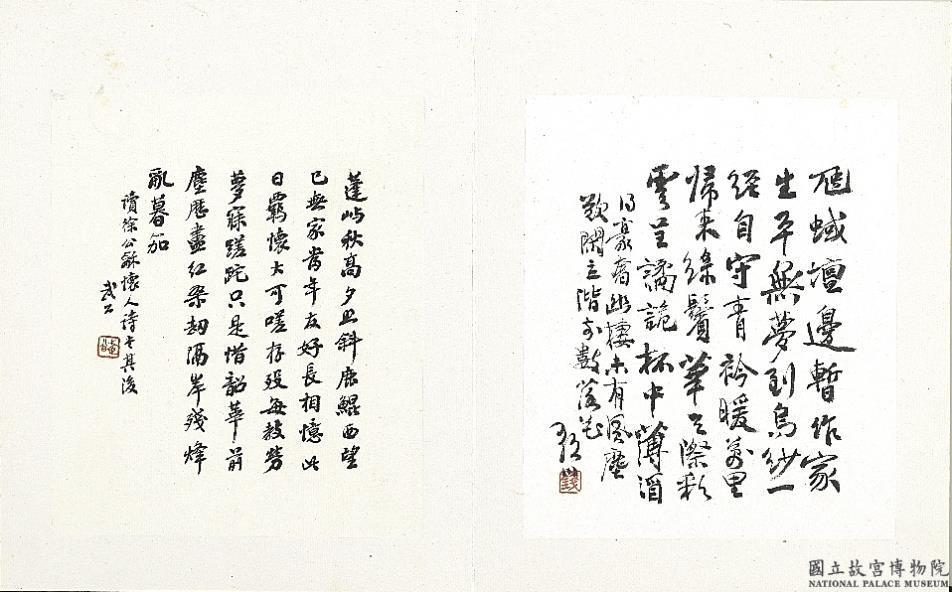 虺蜮壇邊暫作家
生平無夢到烏紗一
經自守青衿暖萬里
歸來綠鬢華天際彩
雲呈譎詭杯中薄酒
得豪奢幽棲未有風塵
歎閑立階前數落花
蓬嶼秋高夕照斜鹿鯤西望
已無家當年友好長相憶此
日羈懷大可嗟存歿每教勞
夢寐蹉跎只是惜韶華前
塵歷盡紅桑劫隔岸殘烽
亂暮笳
讀徐公龢懷人詩書其後
武公
國立故宮博物院
NATIONAL PALACE MUSEUM